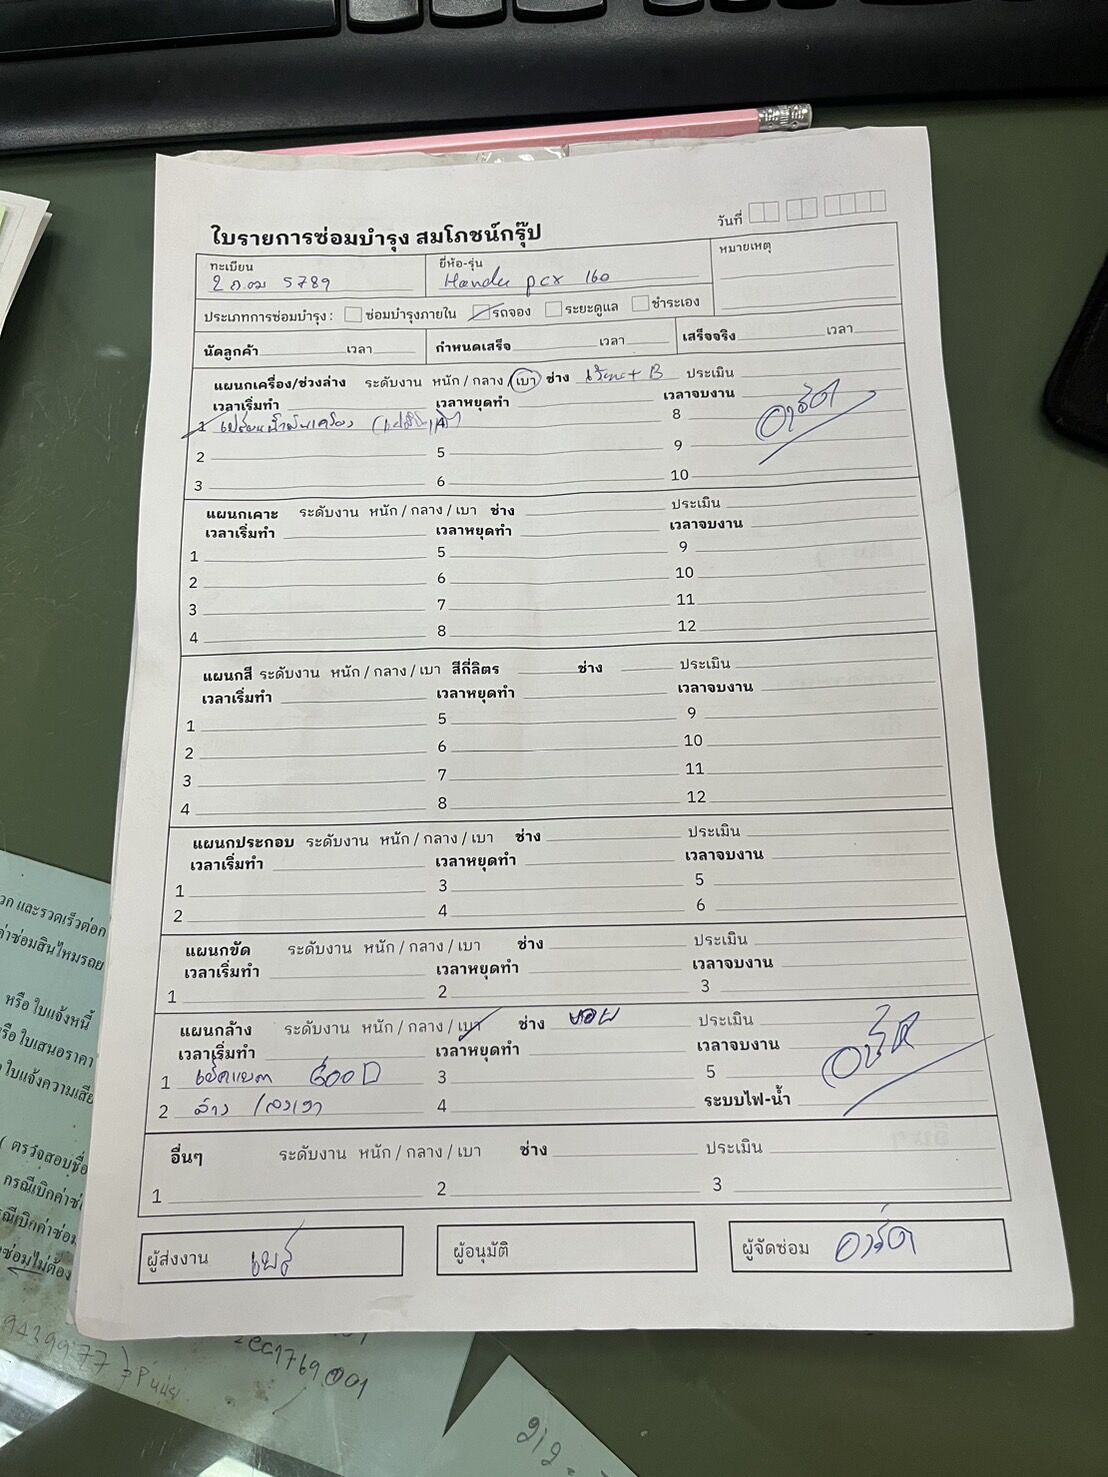 ใบรายการซ่อมบำรุง สมโภชน์กรุ๊ป
วันที่
ทะเบียน
5789
ยี่ห้อ-รุ่น
pcx 160
หมายเหตุ
ประเภทการซ่อมบำรุง : ซ่อมบำรุงภายใน รถจอง ระยะดูแล ชำระเอง
นัดลูกค้า เวลา กำหนดเสร็จ เวลา เสร็จจริง เวลา
แผนกเครื่อง/ช่วงล่าง ระดับงาน หนัก / กลาง / เบา ช่าง ประเมิน
เวลาเริ่มทำ เวลาหยุดทำ เวลาจบงาน
1 เปลี่ยนน้ำมันเครื่อง 4 8 อาร์ต
2 5 9
3 6 10
แผนกเคาะ ระดับงาน หนัก / กลาง / เบา ช่าง ประเมิน
เวลาเริ่มทำ เวลาหยุดทำ เวลาจบงาน
1 5 9
2 6 10
3 7 11
4 8 12
แผนกสี ระดับงาน หนัก / กลาง / เบา สีกี่ลิตร ช่าง ประเมิน
เวลาเริ่มทำ เวลาหยุดทำ เวลาจบงาน
1 5 9
2 6 10
3 7 11
4 8 12
แผนกประกอบ ระดับงาน หนัก / กลาง / เบา ช่าง ประเมิน
เวลาเริ่มทำ เวลาหยุดทำ เวลาจบงาน
1 3 5
2 4 6
แผนกขัด ระดับงาน หนัก / กลาง / เบา ช่าง ประเมิน
เวลาเริ่มทำ เวลาหยุดทำ เวลาจบงาน
1 2 3
แผนกล้าง ระดับงาน หนัก / กลาง / เบา ช่าง ประเมิน
เวลาเริ่มทำ เวลาหยุดทำ เวลาจบงาน
1 3 5 อาร์ต
2 ล้าง 4 ระบบไฟ-น้ำ
อื่นๆ ระดับงาน หนัก / กลาง / เบา ช่าง ประเมิน
1 2 3
ผู้ส่งงาน
ผู้อนุมัติ
ผู้จัดซ่อม อาร์ต
และรวดเร็วต่อก
ค่าซ่อมสินไหมรถย
หรือ ใบแจ้งหนี้
ใบเสนอราคา
ใบแจ้งความเสีย
( ตรวจสอบชื่อ
กรณีเบิกค่าซ่
ซ่อมไม่ต้อง